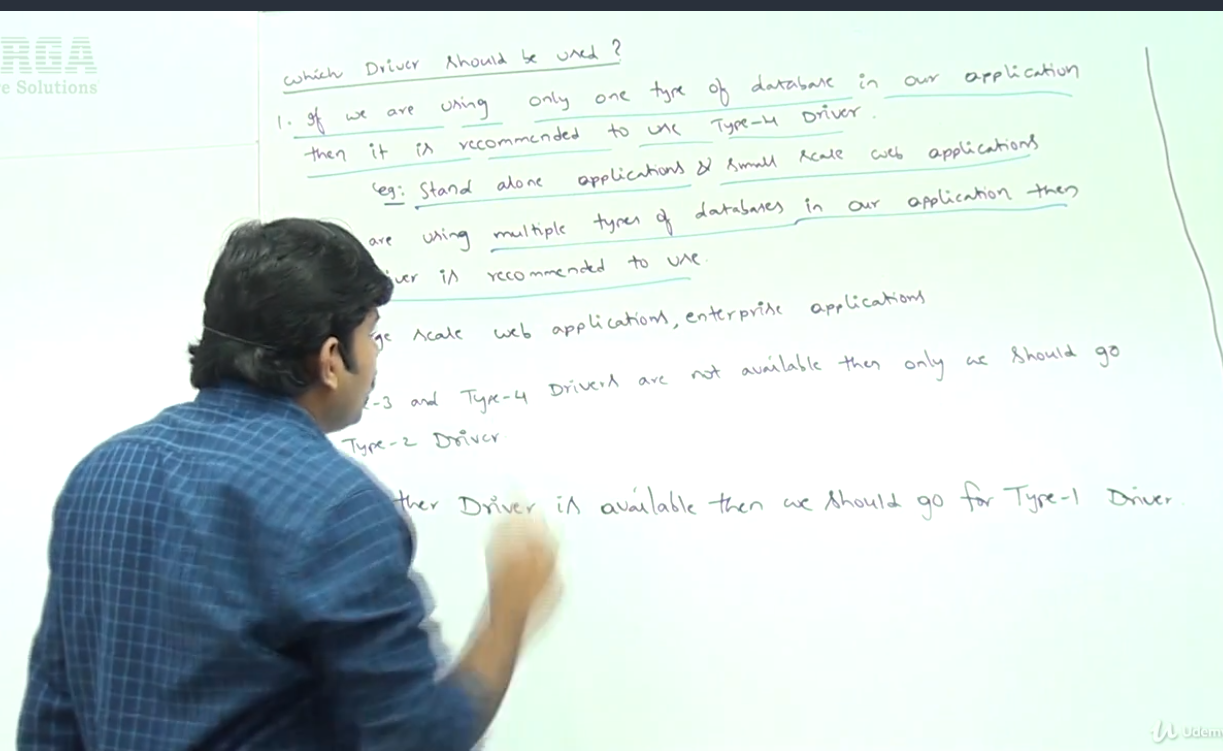 RGA
e Solutions
which Driver should be used ?
1. If we are using only one type of database in our application
then it is recommended to use Type-4 Driver.
eg: Stand alone applications & small scale web applications
are using multiple types of databases in our application then
iver is recommended to use.
ge scale web applications, enterprise applications
e-3 and Type-4 Drivers are not available then only we should go
Type-2 Driver.
ther Driver is available then we should go for Type-1 Driver.
Udem